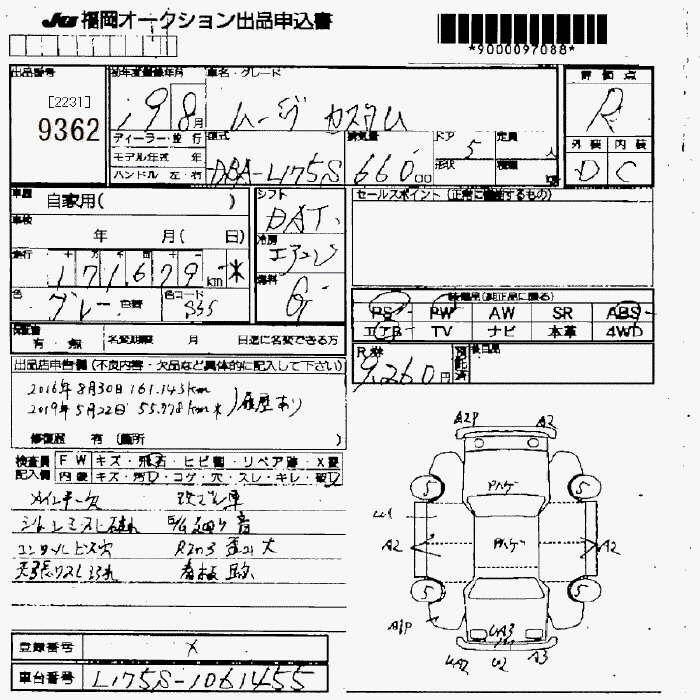 JU 福岡オークション出品申込書
*9000097088*
出品番号
[2231]
9362
初年度登録年月
19 8月
車名・グレード
ムーヴ カスタム
評価点
R
外装 内装
D C
ディーラー・並行
モデル年式 年
ハンドル 左・右
型式
DBA-L175S
排気量
660
ドア
5
定員
人
形状
車歴
自家用( )
車検
年 月( 日)
走行
171,679km*
色
グレー
色替
色コード
S55
シフト
DAT
冷房
エアコン
燃料
G
セールスポイント(正常に機能するもの)
装備品(純正品に限る)
PS PW AW SR ABS
エアB TV ナビ 本革 4WD
R券
9,260円
預託済
後日品
保証書
有・無
名変期限 月 日迄に名変できる方
出品店申告欄(不良内容・欠品など具体的に記入して下さい)
2016年8月30日 161,143km
2019年5月22日 55,778km* )履歴あり
修復歴 有(箇所 )
検査員記入欄
FW キズ・飛石・ヒビ割・リペア跡・X要
内装 キズ・汚れ・コゲ・穴・スレ・キレ・要
メインキーX
シートシミスレ破れ
天張クスレ汚れ
A2P A2
Pハゲ
Pハゲ
5 5
5 5
A2 A2
A1P
UA3
UA2 U2 A3
登録番号
X
車台番号
L175S-1061455